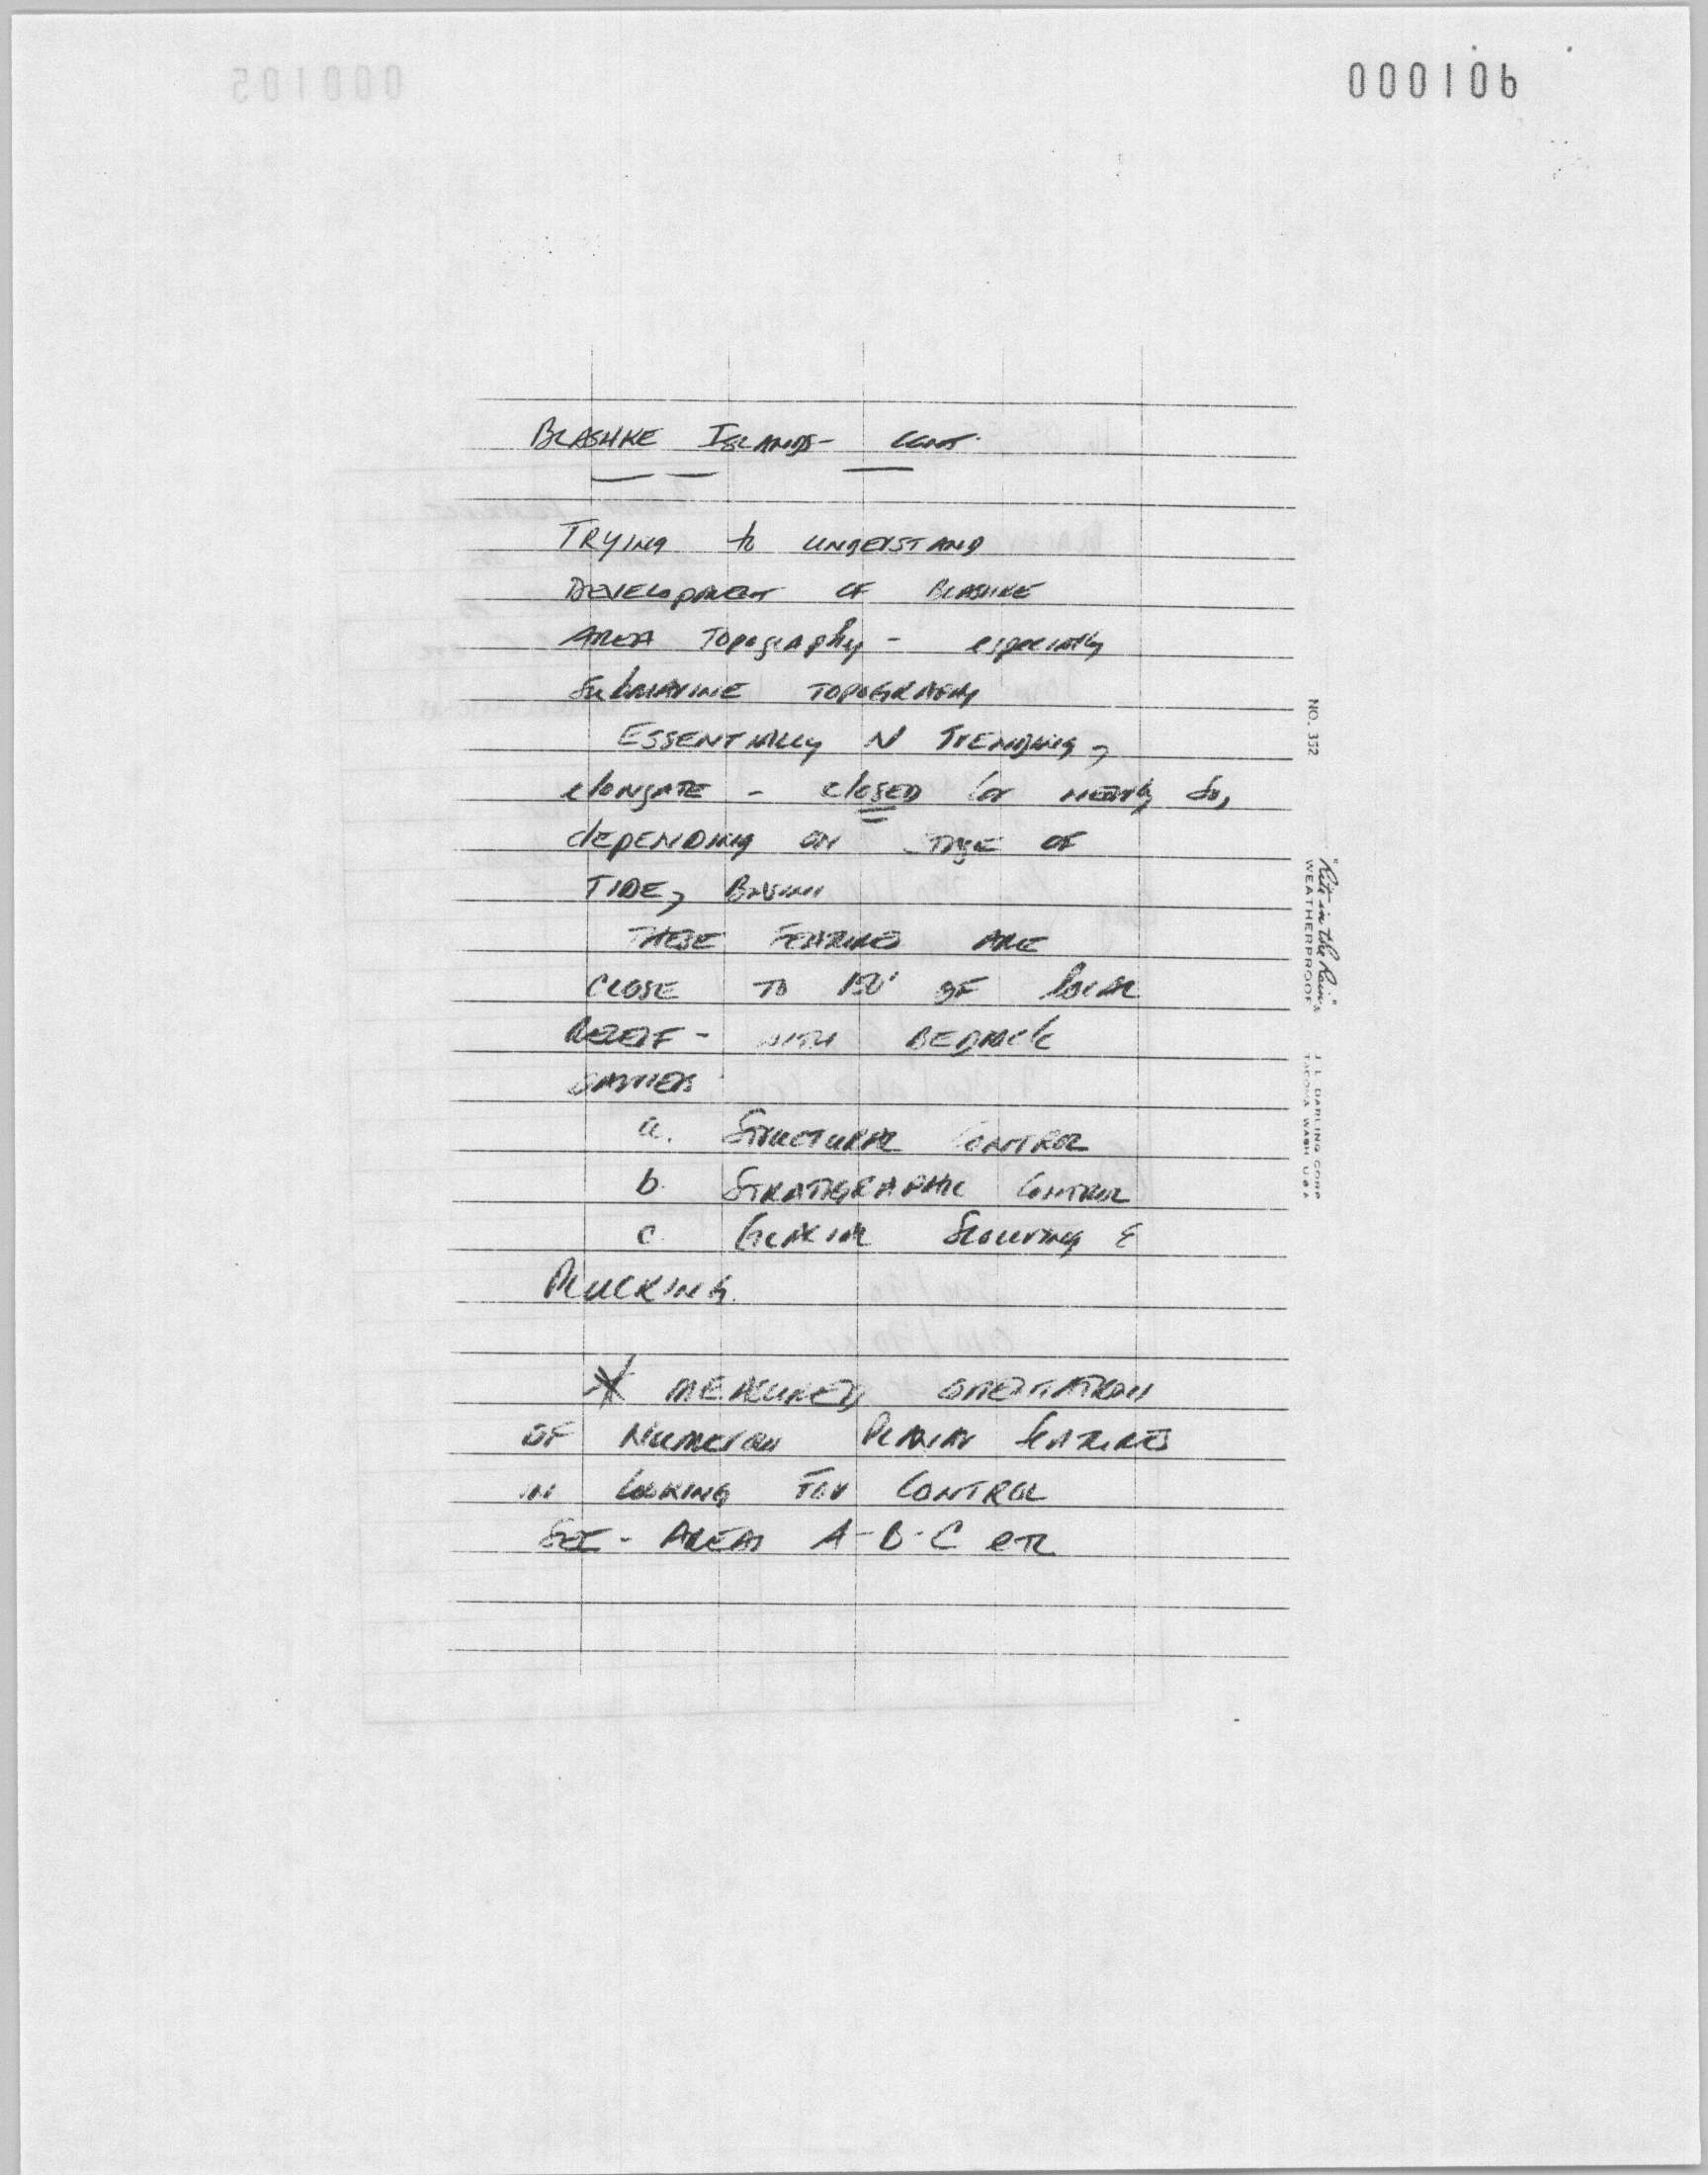 000106
BLASHKE ISLANDS- CONT.
TRYING to UNDERSTAND
DEVELOPMENT OF BLASHKE
AREA TOPOGRAPHY - especially
SUBMARINE TOPOGRAPHY
ESSENTIALLY N TRENDING,
elongate - closed (or nearly so,
depending on STAGE OF
TIDE, BASINS
THESE FEATURES ARE
CLOSE TO 150' OF LOCAL
RELIEF - WITH BEDROCK
BARRIERS
a. STRUCTURAL CONTROL
b. STRATIGRAPHIC CONTROL
c. GLACIAL SCOURING &
PLUCKING.
* MEASURED ORIENTATION
OF NUMEROUS PLANAR FEATURES
IN LOOKING FOR CONTROL
SEE - AREAS A-B-C etc
NO. 352
"Rite in the Rain"
WEATHERPROOF
J. L. DARLING CORP.
TACOMA WASH USA
000105